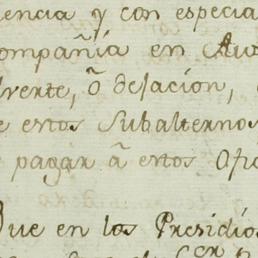 encia y con especia
ompañía en Au
lvente, ô delacion,
e estos Subalternos
pagar â estos Ofi
Que en los Presidios